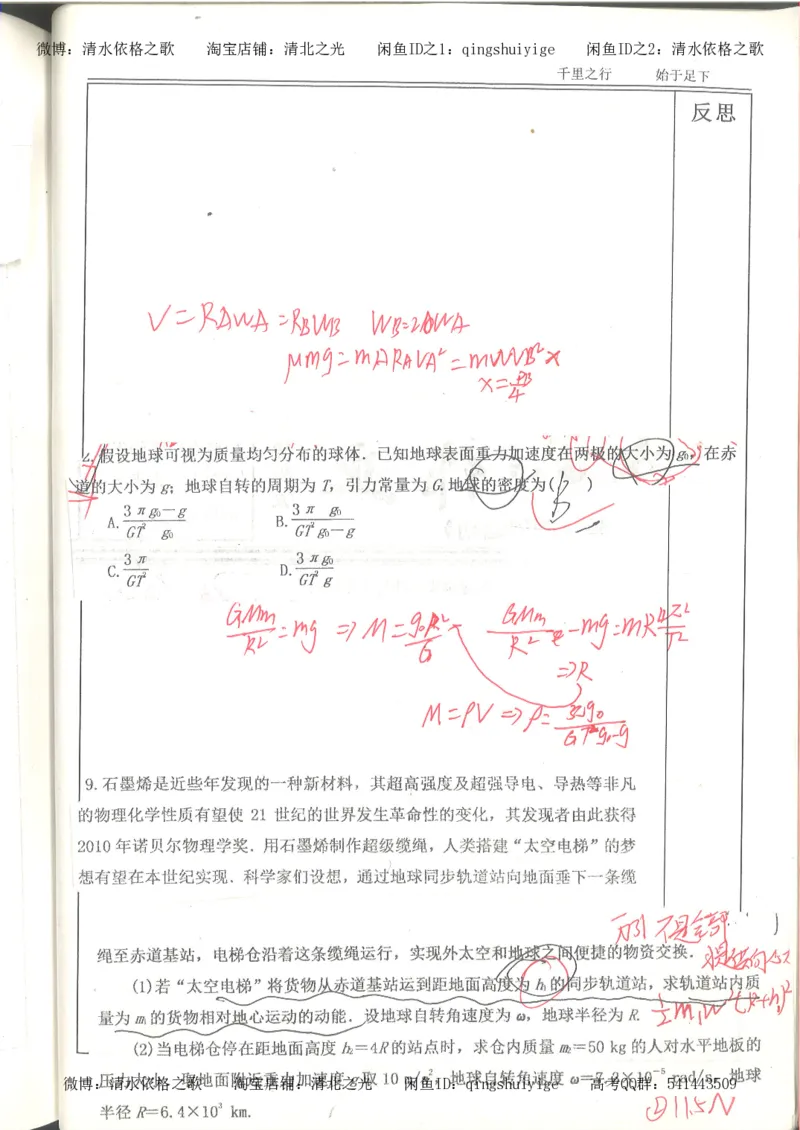 微博：清水依格之歌 淘宝店铺：清北之光 闲鱼ID之1：qingshuiyige 闲鱼ID之2：清水依格之歌
千里之行 始于足下
反思
V=RAWA=RBWB WB=2WA
μmg=mARAWA²=mWB²x
x=RB/4
2.假设地球可视为质量均匀分布的球体．已知地球表面重力加速度在两极的大小为g₀，在赤
道的大小为g；地球自转的周期为T，引力常量为G.地球的密度为( B )
A. 3π/GT² g₀-g/g₀ B. 3π/GT² g₀/g₀-g
C. 3π/GT² D. 3π/GT² g₀/g
GMm/R²=mg ⇒ M=g₀R²/G GMm/R²-mg=mR4π²/T²
⇒R
M=ρV ⇒ ρ=3πg₀/GT²g₀-g
9.石墨烯是近些年发现的一种新材料，其超高强度及超强导电、导热等非凡
的物理化学性质有望使 21 世纪的世界发生革命性的变化，其发现者由此获得
2010 年诺贝尔物理学奖．用石墨烯制作超级缆绳，人类搭建“太空电梯”的梦
想有望在本世纪实现．科学家们设想，通过地球同步轨道站向地面垂下一条缆
绳至赤道基站，电梯仓沿着这条缆绳运行，实现外太空和地球之间便捷的物资交换．
(1)若“太空电梯”将货物从赤道基站运到距地面高度为 h₁的同步轨道站，求轨道站内质
量为 m₁的货物相对地心运动的动能．设地球自转角速度为 ω，地球半径为 R.
½m₁W²(R+h₁)²
(2)当电梯仓停在距地面高度 h₂=4R的站点时，求仓内质量 m₂=50 kg 的人对水平地板的
压力大小．取地面附近重力加速度 g取 10 m/s²，地球自转角速度 ω=7.3×10⁻⁵ rad/s，地球
微博：清水依格之歌 淘宝店铺：清北之光 闲鱼ID：qingshuiyige 高考QQ群：541443509
半径 R=6.4×10³ km.
②11.5N